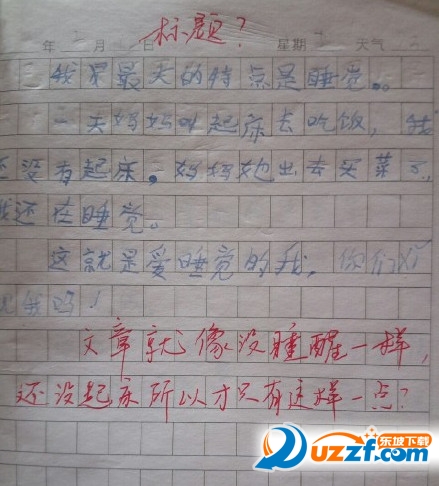 标题？
年 月 日 星期 天气
我是最大的特点是睡觉。
一天妈妈叫起床去吃饭，我
还没有起床。妈妈她出去买菜了，
我还在睡觉。
这就是爱睡觉的我，你们
我吗！
文章就像没睡醒一样，
还没起床所以才只有这样一点？
乐城下载
UZZF.com